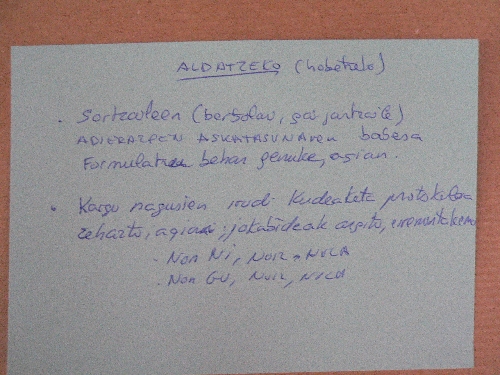 ALDATZEKO (hobetzeko)
. Sortzaileen (bertsolari, gai jartzaile)
ADIERAZPEN ASKATASUNAren babesa
Formulatu behar genuke, agian.
. Kargu nagusien irudi kudeaketa protokoloa
zehaztu, agian; jokabideak argitu,
. Non Ni, Noiz, Nola
. Non GU, Noiz, Nola